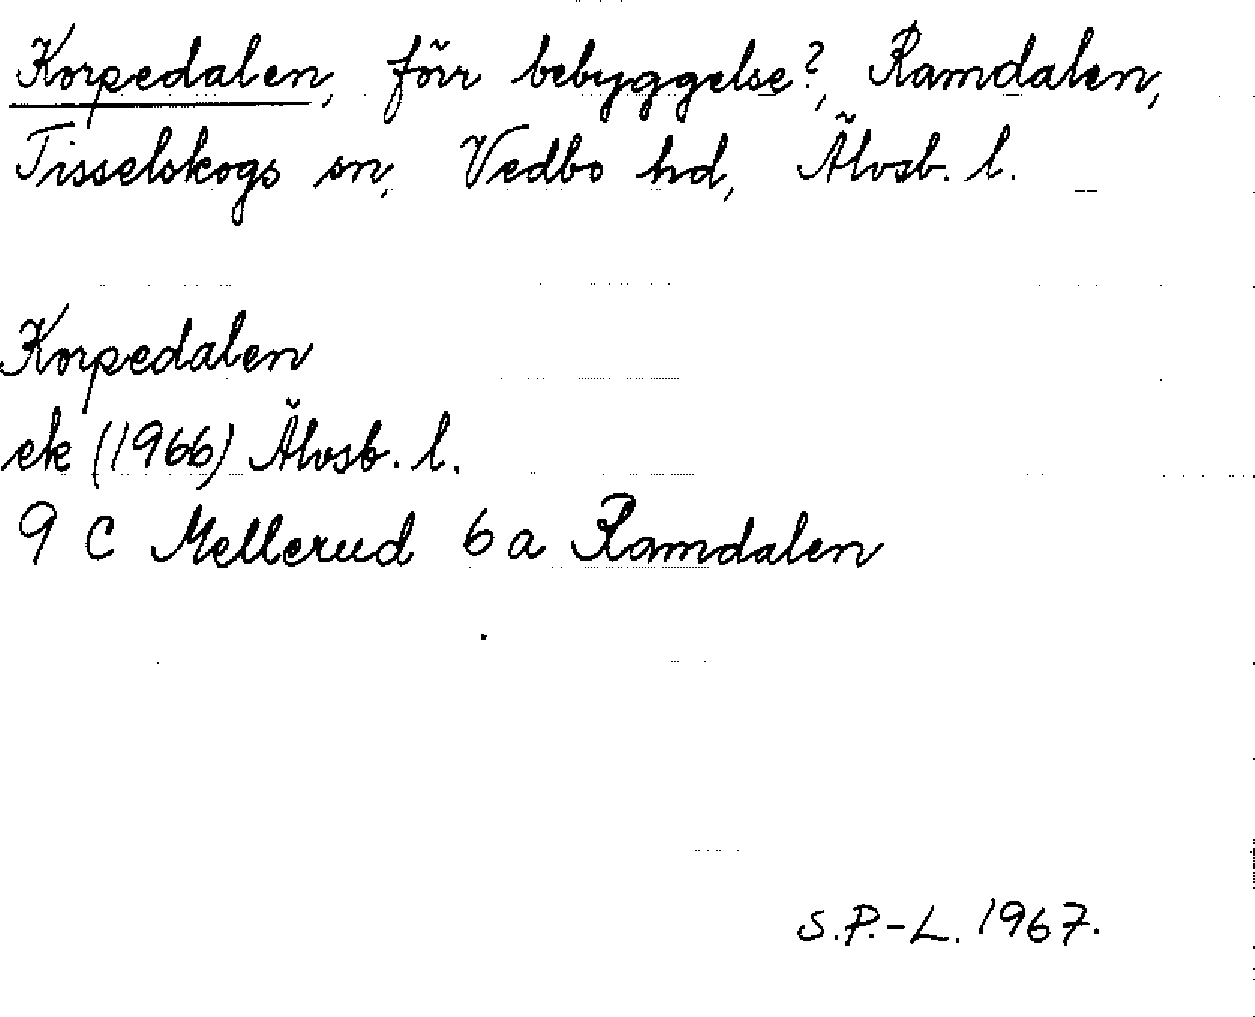 Korpedalen, förr bebyggelse?, Ramdalen,
Tisselskogs sn, Vedbo hd, Älvsb. l.
Korpedalen
ek (1966) Älvsb. l.
9 C Mellerud 6 a Ramdalen
S.P.-L. 1967.